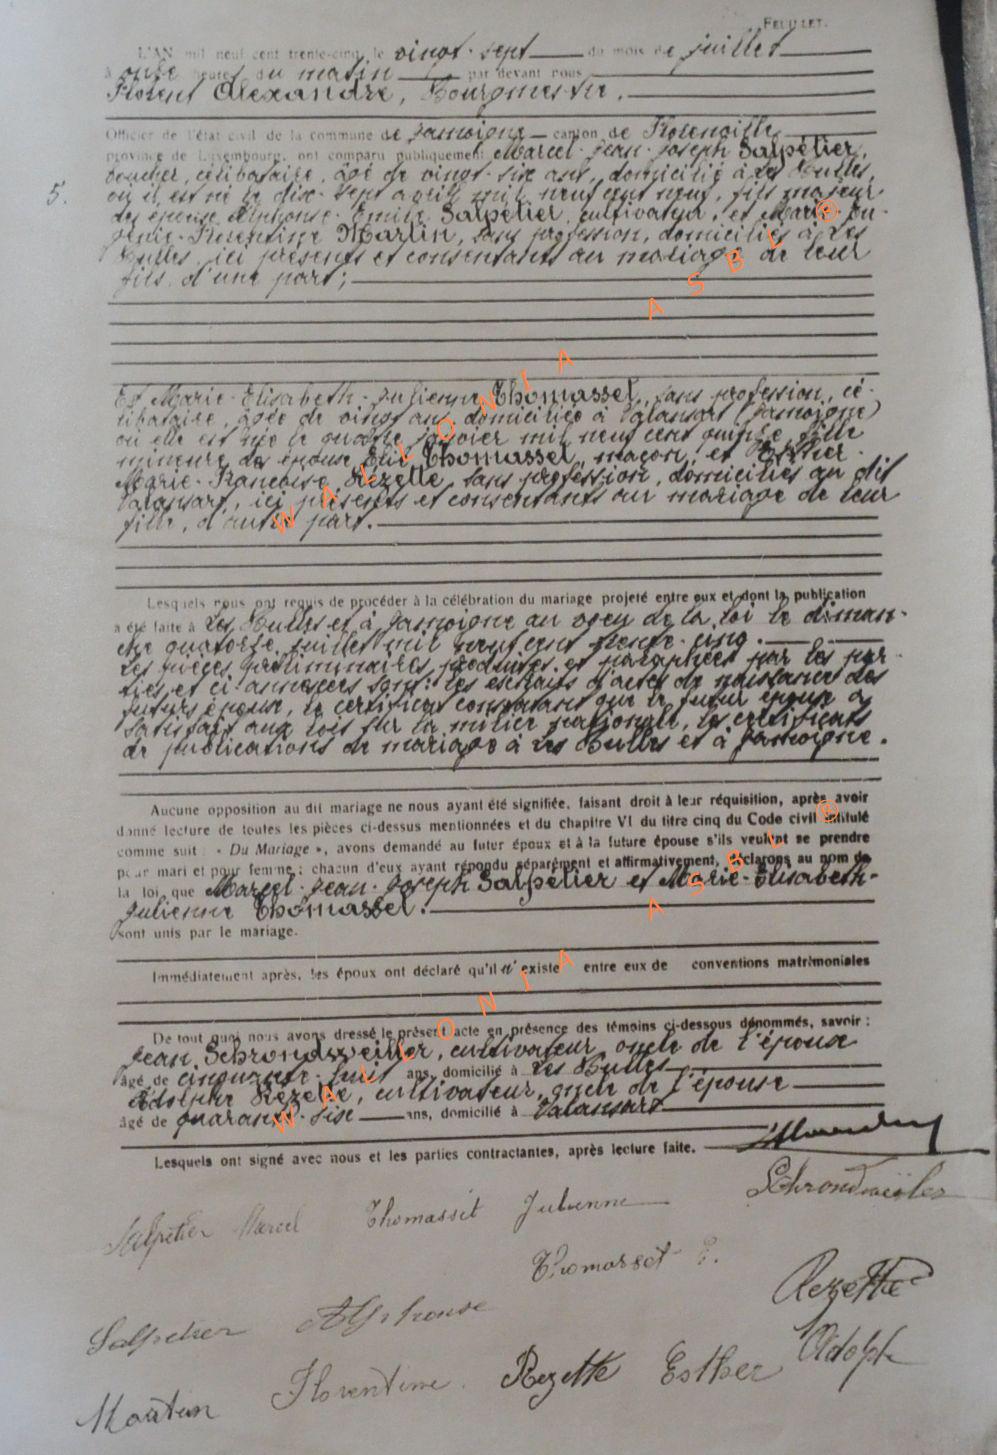 FEUILLET.
L'AN mil neuf cent trente-cinq, le vingt-sept du mois de juillet
à onze heures du matin par devant nous
Florent Alexandre, Bourgmestre.
Officier de l'état civil de la commune de Jamoigne canton de Florenville
province de Luxembourg, ont comparu publiquement Marcel-Jean-Joseph Salpétier,
5. boucher, célibataire, âgé de vingt-six ans, domicilié à Les Bulles,
où il est né le dix-sept avril mil neuf cent neuf, fils majeur
des époux Alphonse-Emile Salpétier, cultivateur, et Marie-Eu-
génie-Florentine Martin, sans profession, domiciliés à Les
Bulles, ici présents et consentants au mariage de leur
fils, d'une part;
Et Marie-Elisabeth-Julienne Thomasset, sans profession, cé-
libataire, âgée de vingt ans, domiciliée à Valansart (Jamoigne)
où elle est née le quatre janvier mil neuf cent quinze, fille
mineure des époux Elie Thomasset, maçon, et Esther-
Marie-Françoise Rezette, sans profession, domiciliés au dit
Valansart, ici présents et consentants au mariage de leur
fille, d'autre part.
Lesquels nous ont requis de procéder à la célébration du mariage projeté entre eux et dont la publication
a été faite à Les Bulles et à Jamoigne au vœu de la loi le diman-
che quatorze juillet mil neuf cent trente-cinq.
Les pièces préliminaires, produites et paraphées par les par-
ties, et ci-annexées sont: les extraits d'actes de naissance des
futurs époux, le certificat constatant que le futur époux a
satisfait aux lois sur la milice nationale, les certificats
de publications de mariage à Les Bulles et à Jamoigne.
Aucune opposition au dit mariage ne nous ayant été signifiée, faisant droit à leur réquisition, après avoir
donné lecture de toutes les pièces ci-dessus mentionnées et du chapitre VI du titre cinq du Code civil intitulé
comme suit : « Du Mariage », avons demandé au futur époux et à la future épouse s'ils veulent se prendre
pour mari et pour femme : chacun d'eux ayant répondu séparément et affirmativement, déclarons au nom de
la loi, que Marcel-Jean-Joseph Salpétier et Marie-Elisabeth-
Julienne Thomasset.
sont unis par le mariage.
Immédiatement après, les époux ont déclaré qu'il n'existe entre eux de conventions matrimoniales
De tout quoi nous avons dressé le présent acte en présence des témoins ci-dessous dénommés, savoir :
Jean Schrondweiller, cultivateur, oncle de l'époux
âgé de cinquante-huit ans, domicilié à Les Bulles
Adolphe Rezette, cultivateur, oncle de l'épouse
âgé de quarante-six ans, domicilié à Valansart
Lesquels ont signé avec nous et les parties contractantes, après lecture faite.
Schrondweiler
Salpétier Marcel Thomasset Julienne
Thomasset E.
Rezette
Salpetier Alphonse
Adolph
Martin Florentine Rezette Esther
WALLONIA ASBL ®
WALLONIA ASBL ®